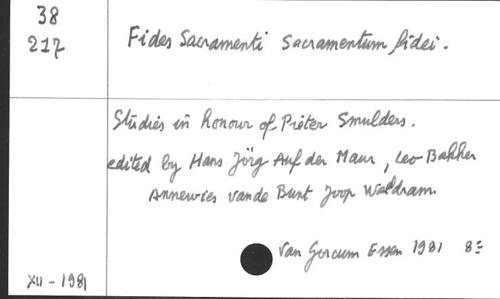 38
217
Fides Sacramenti Sacramentum fidei.
Studies in honour of Pieter Smulders.
edited by Hans Jörg Auf der Maur, Leo Bakker
Annewies vande Bunt Joop Waldram.
Van Gorcum Essen 1981 8=
XII - 1981